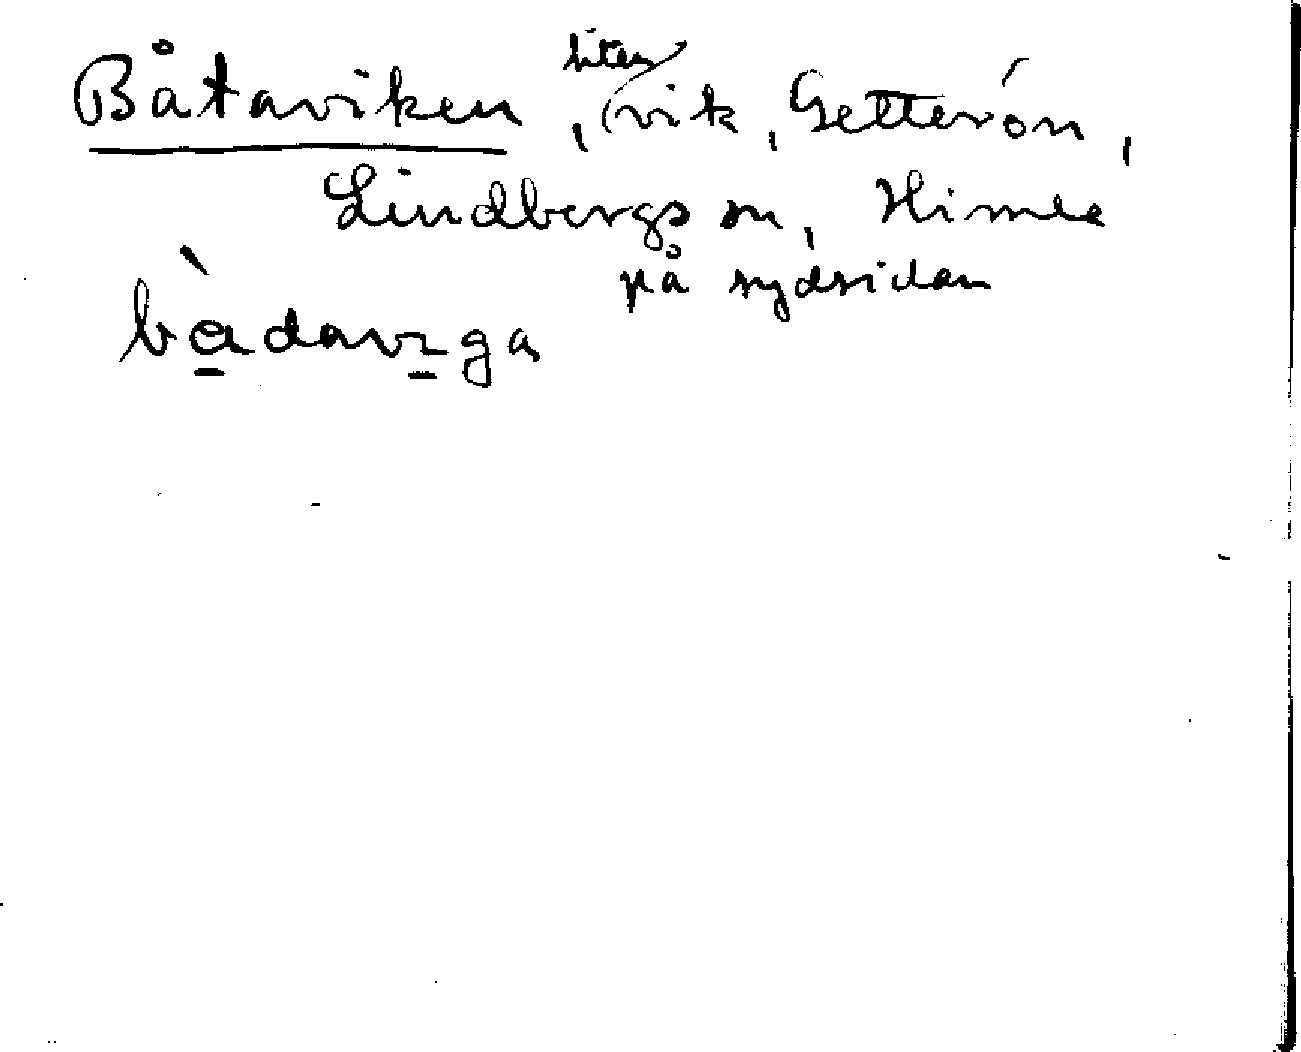 Båtaviken, liten vik, Getterön,
Lindbergs sn, Himle
på sydsidan
bàdavıga